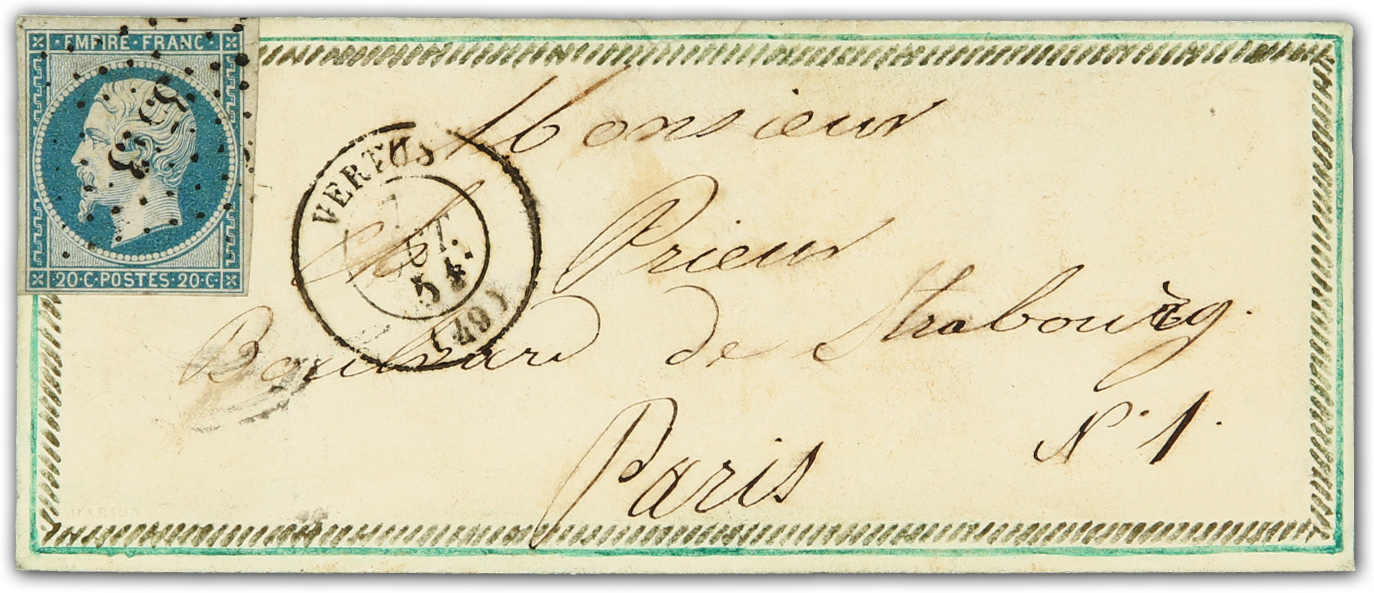 EMPIRE · FRANC
20 · C · POSTES · 20 · C ·
VERTUS
7
OCT.
54
(49)
Monsieur
Prieur
Boulevard de Strabourg.
N° 1.
Paris